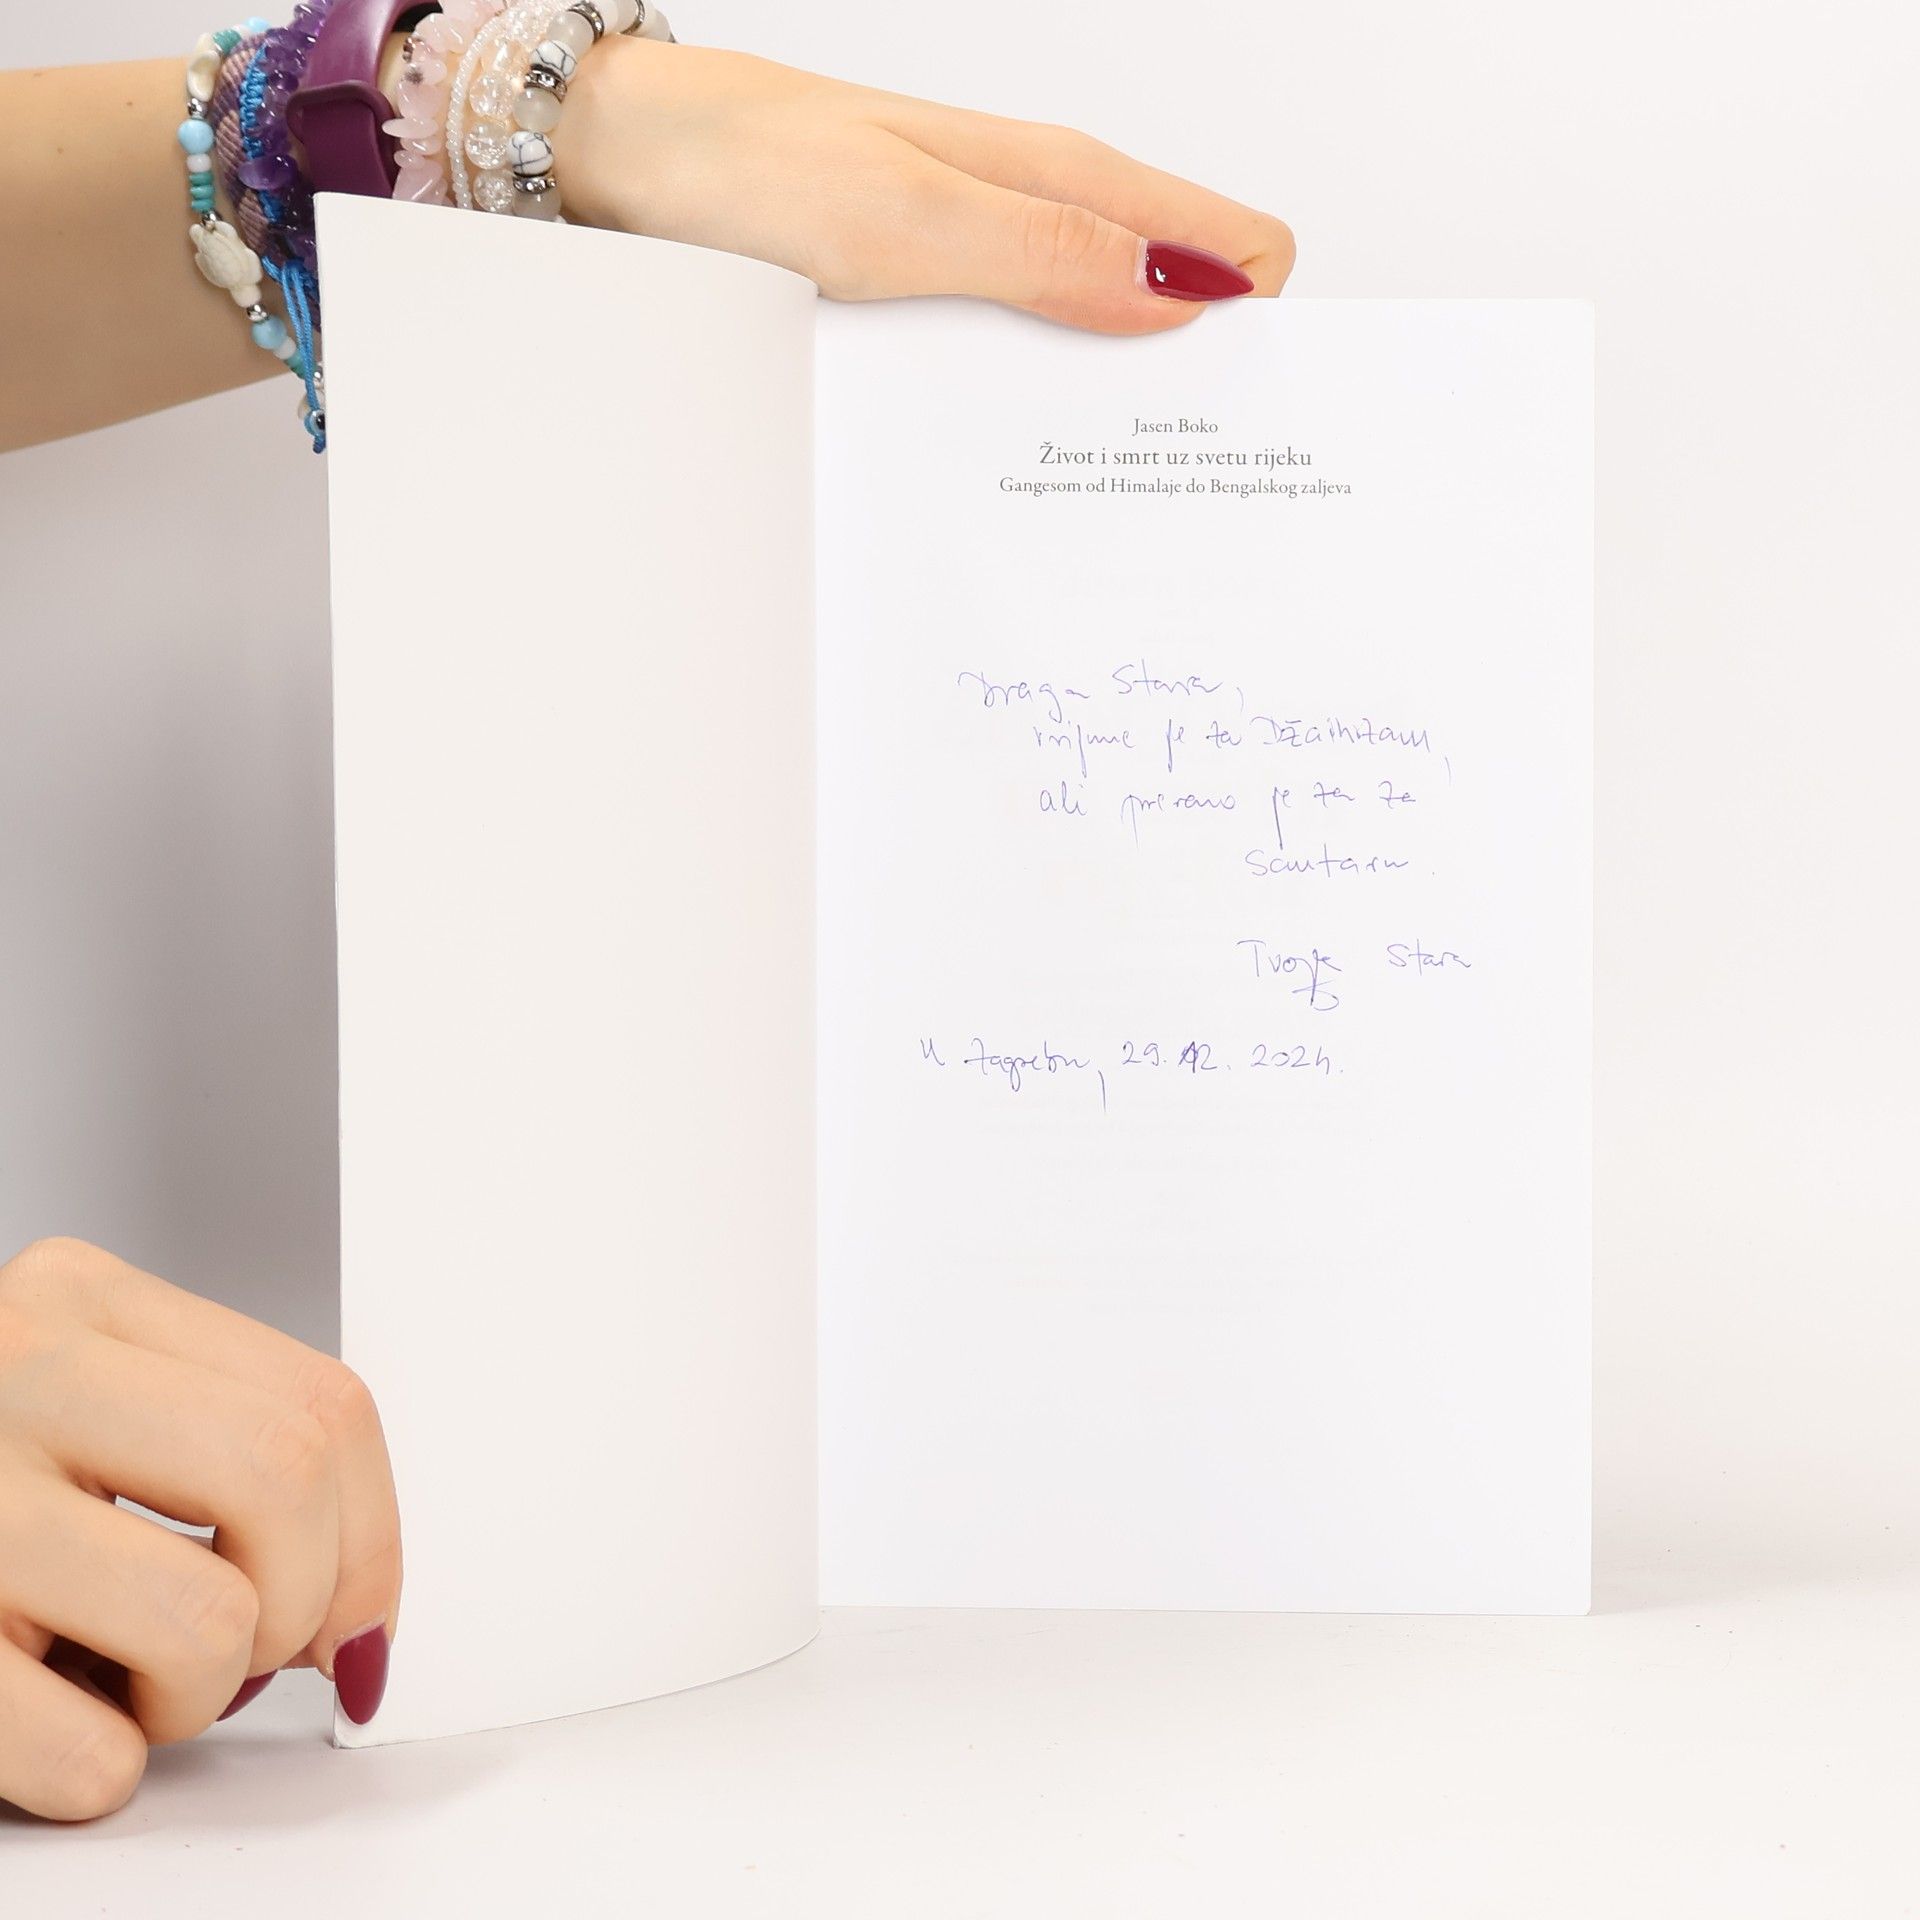 Jasen Boko
Život i smrt uz svetu rijeku
Gangesom od Himalaje do Bengalskog zaljeva
Draga Stara,
vrijme je za Džainizam,
ali prerano je za za
Santaru.
Tvoja Stara
U Zagrebu, 29. 12. 2024.